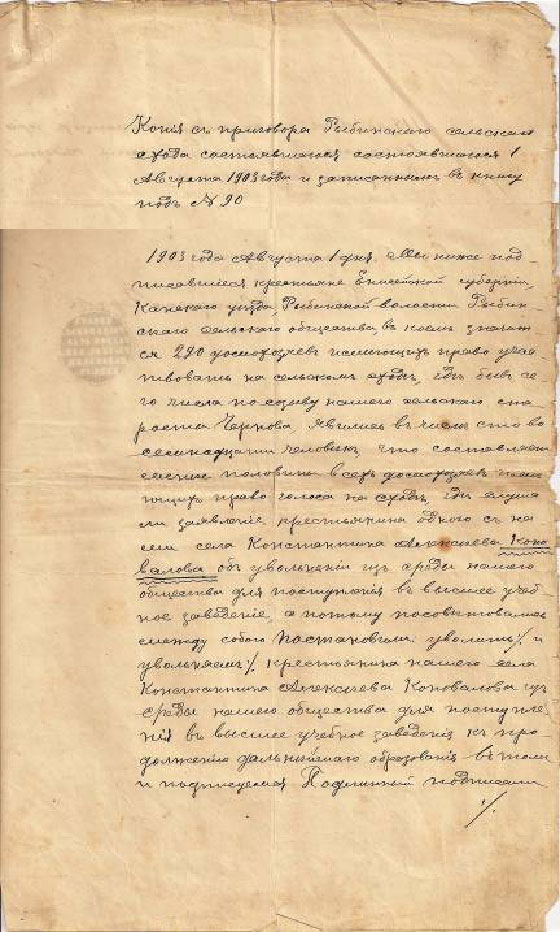 Копія съ приговора Рыбинскаго сельскаго
схода состоявшагося состоявшагося 1
Августа 1903 года и записаннымъ въ книгу
подъ № 90
1903 года Августа 1 дня. Мы ниже под-
писавшіеся крестьяне Енисейской губерніи,
Канскаго уѣзда, Рыбинской волости Рыбин-
скаго сельскаго общества, въ коемъ значит-
ся 290 домохозяевъ имеющихъ право учас-
твовать на сельскомъ сходѣ, гдѣ бывъ се-
го числа по созыву нашего сельскаго ста-
росты явились въ числѣ сто во
семнадцати человѣкъ, что составляетъ
менѣе половины всехъ домохозяевъ имею
ющихъ право голоса на сходѣ, гдѣ слуша
ли заявленіе крестьянина одного съ на
ми села Константина Алексѣева Коно
валова объ увольненіи изъ среды нашего
общества для поступленія въ высшее учеб-
ное заведеніе, а потому посовѣтовавшись
между собой Постановили уволить % и
увольняемъ % крестьянина нашего села
Константина Алексѣева Коновалова изъ
среды нашего общества для поступле
нія въ высшее учебное заведеніе къ про-
долженію дальнѣйшаго образованія въ томъ
и подписуемся Подлинный подписали
%